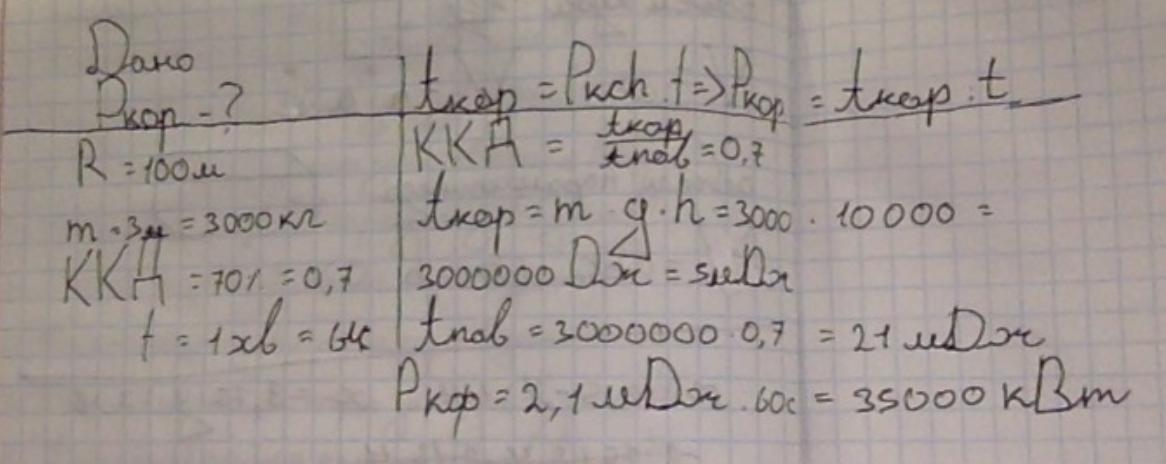 Дано
Pкор - ?
R = 100м
m = 3м = 3000кг
ККД = 70% = 0,7
t = 1хв = 60с
tкор = Pксh · t => Pкор = tкор : t
ККД = tкор/tпов = 0,7
tкор = m · g · h = 3000 · 10 000 =
3000000 Дж = 3мДж
tпов = 3000000 · 0,7 = 21 мДж
Pкор = 2,1 мДж · 60с = 35000 кВт